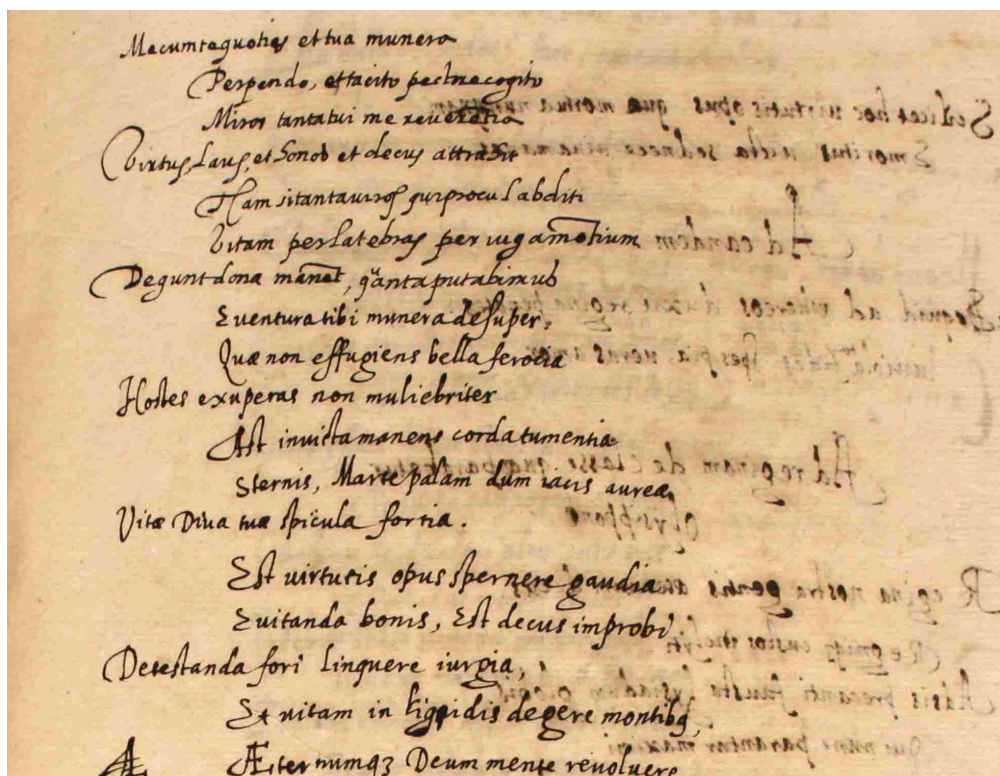 Mecum te quoties et tua munera
Perpendo, et tacito pectore cogito
Miror tanta tui me reverentia
Virtus, Laus, et honos et decus attrahit
Nam si tanta viros qui procul abditi
Vitam per latebras per iuga mōtium
Degunt dona manēt, qūanta putabimus
Eventura tibi munera desuper,
Quæ non effugiens bella ferocia
Hostes exuperas non muliebriter
Ast invicta manens corda tumentia
Sternis, Marte palam dum iacis aurea,
Vitæ Diva tuæ spicula fortia.
Est virtutis opus spernere gaudia
Evitanda bonis, Est decus improbi
Detestanda fori linquere iurgia,
Et vitam in degere montibꝯ,
Æternumqꝫ Deum mente revolvere